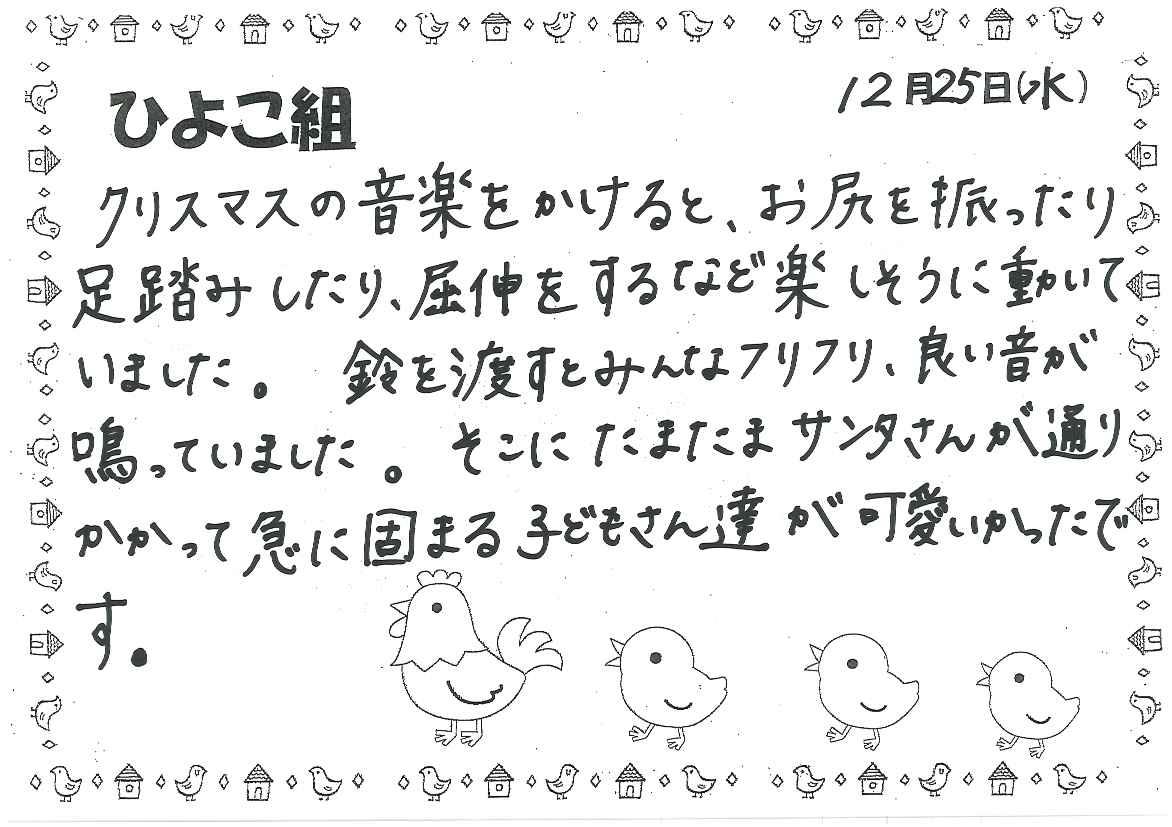 ひよこ組
12月25日(水)
クリスマスの音楽をかけると、お尻を振ったり
足踏みしたり、屈伸をするなど楽しそうに動いて
いました。 鈴を渡すとみんなフリフリ、良い音が
鳴っていました。 そこにたまたまサンタさんが通り
かかって急に固まる子どもさん達が可愛いかったで
す。